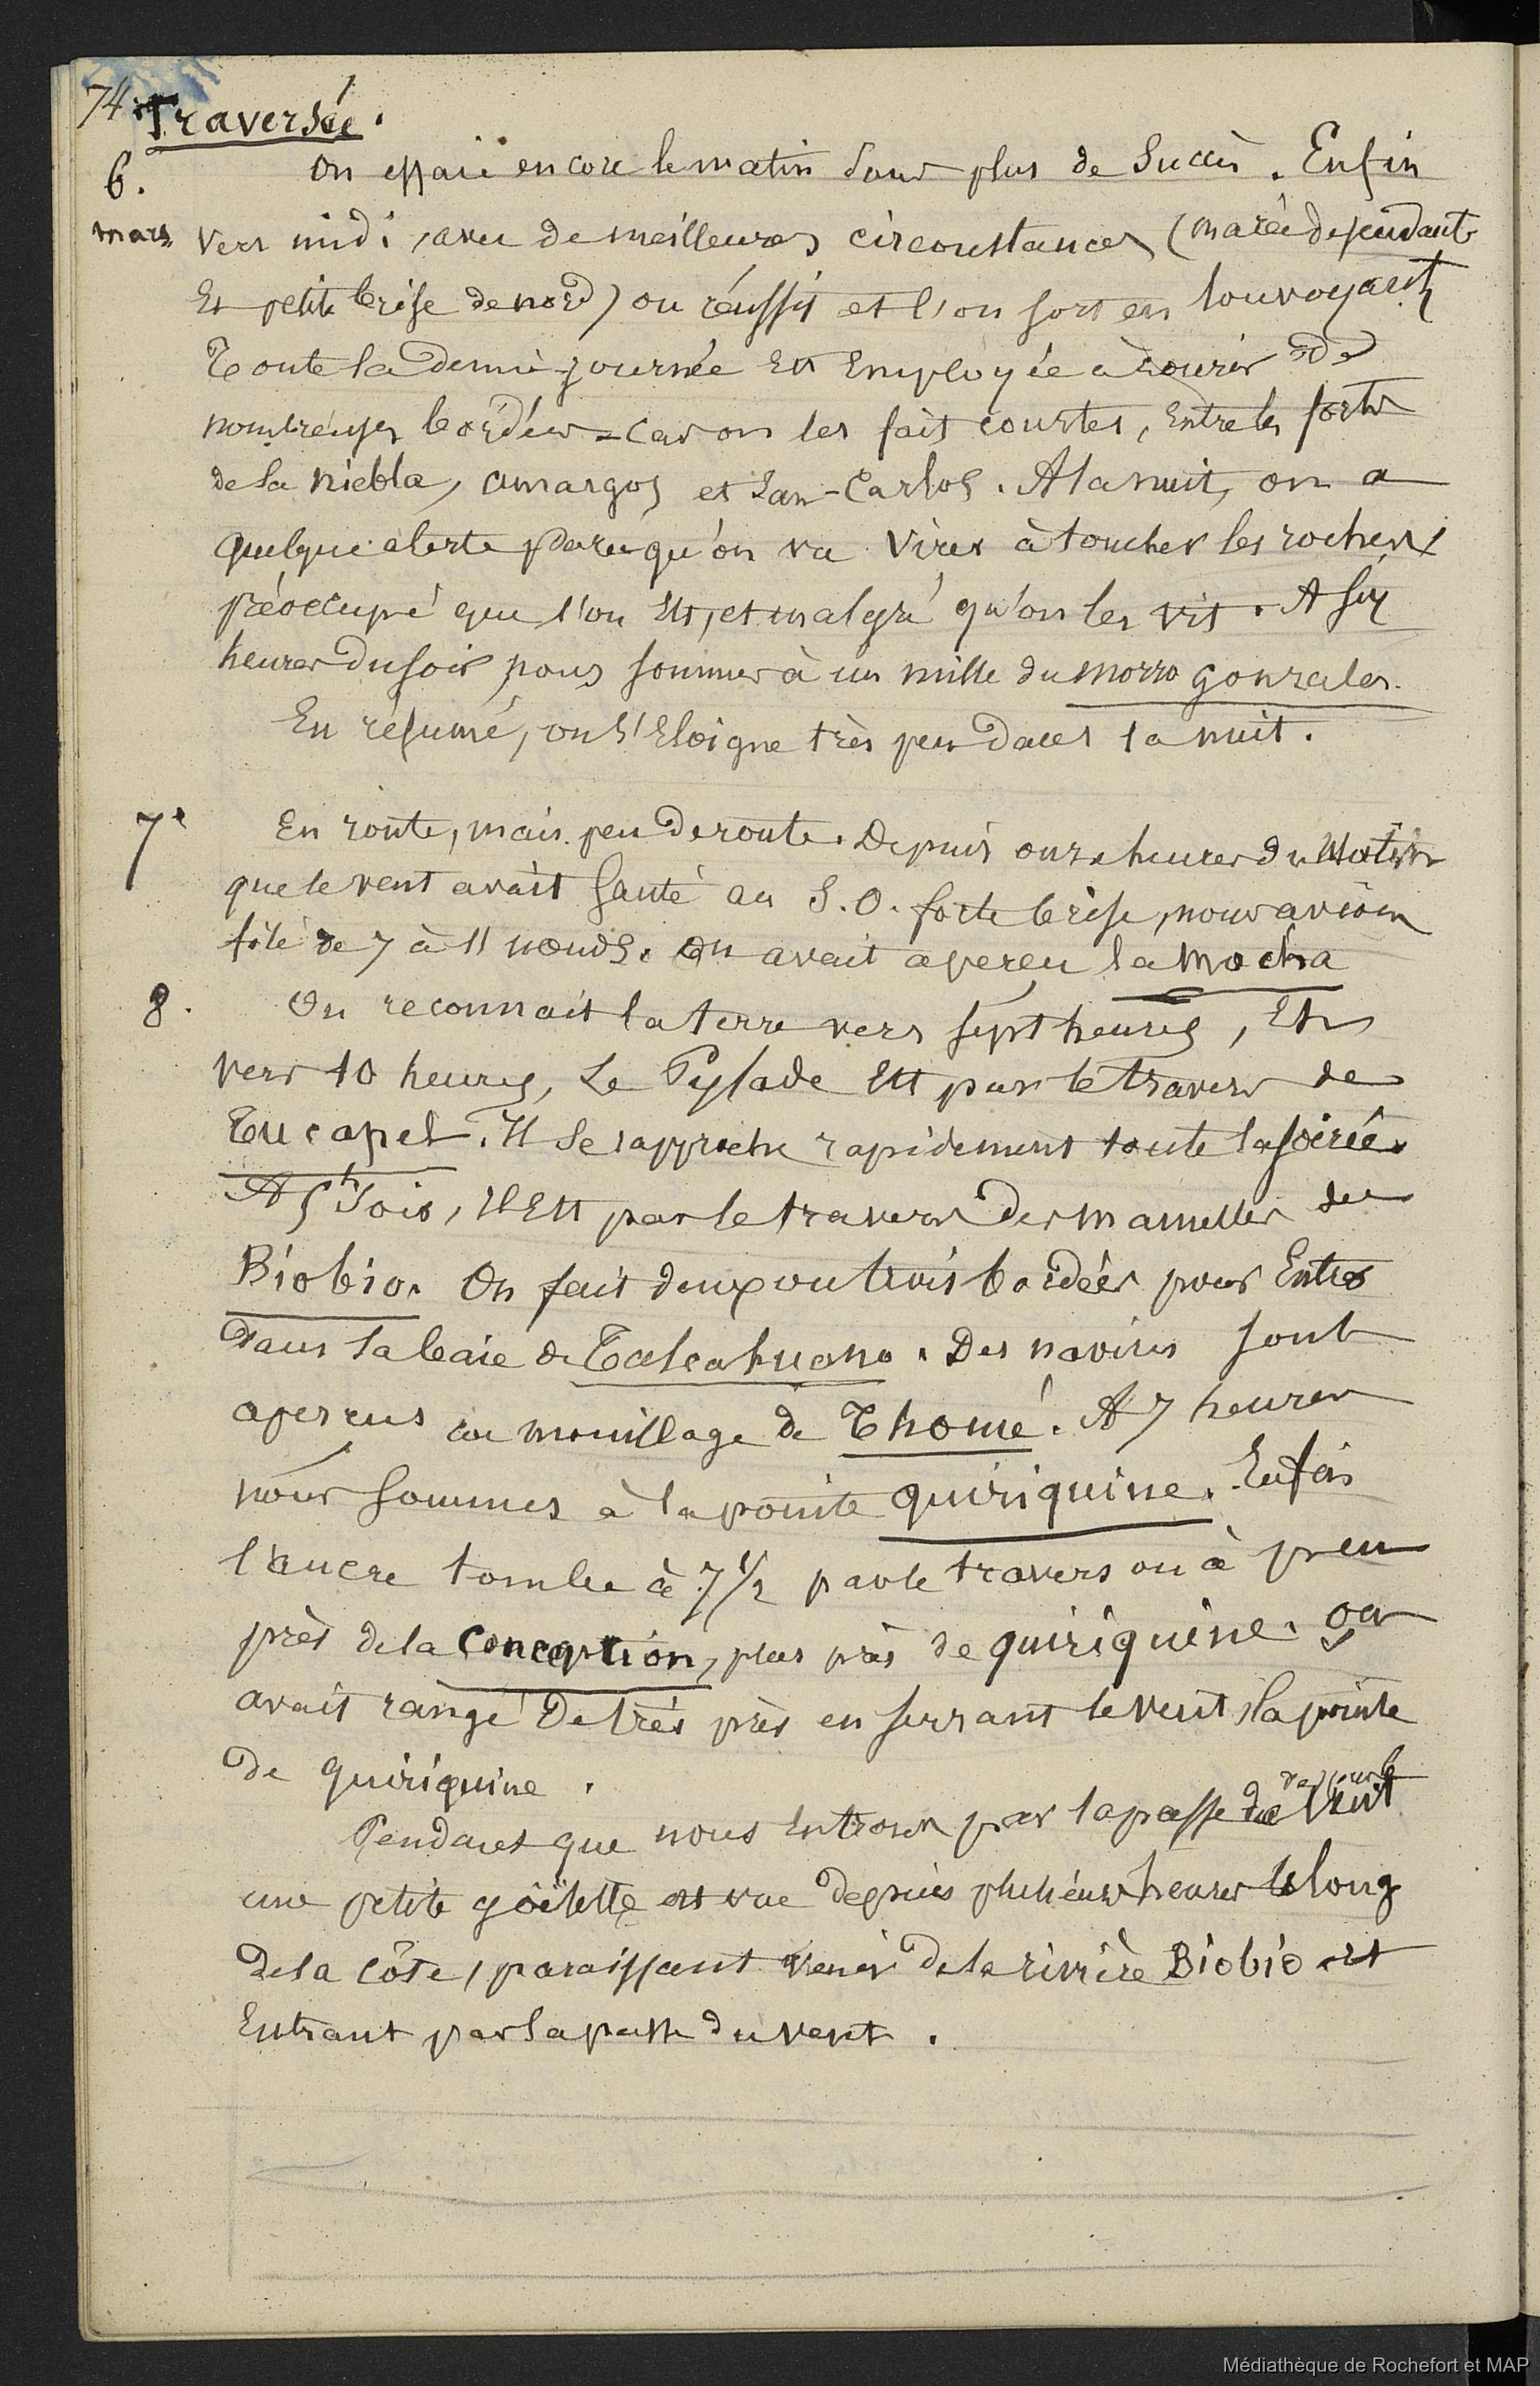 74.
Traversée.
6.
mars
On essaie encore le matin sans plus de succès. Enfin
vers midi, avec de meilleures circonstances (marée descendante
Et petite brise de nord) on réussit et l'on sort en louvoyant
Toute la demie-journée Est Employée à courir de
nombreuses bordées - car on les fait courtes, Entre les forts
de la niebla, amargos et San-Carlos. A la nuit, on a
quelque alerte parce qu'on va virer à toucher les rochers
préoccupé que l'on Est, et malgré qu'on les vit. A six
heures du soir nous sommes à un mille du morro gonzales.
En résumé, on s'Eloigne très peu dans la nuit.
7.
En route, mais peu de route. Depuis onze heures du matin
que le vent avait sauté au S.O. forte brise, nous avions
filé de 7 à 11 nœuds. On avait apercu la mocha
8.
On reconnait la terre vers sept heures, Et
vers 10 heures, Le Pylade Est par le travers de
Tucapel. Il se rapproche rapidement toute la soirée.
A 5h soir, Il Est par le travers des mamelles du
Biobio. On fait deux ou trois bordées pour Entrer
dans la baie de Talcahuano. Des navires sont
apercus au mouillage de Thomé. A 7 heures
nous sommes à la pointe quiriquine. Enfin
l'ancre tombe à 7 1/2 par le travers ou à peu
près de la Conception, plus près de quiriquine. On
avait rangé de très près en serrant le vent, la pointe
de quiriquine.
Pendant que nous Entrons par la passe de dessous le
vent
une petite goëlette est vue depuis plusieurs heures le long
de la côte, paraissant venir de la rivière Biobio et
Entrant par la passe du vent.
Médiathèque de Rochefort et MAP